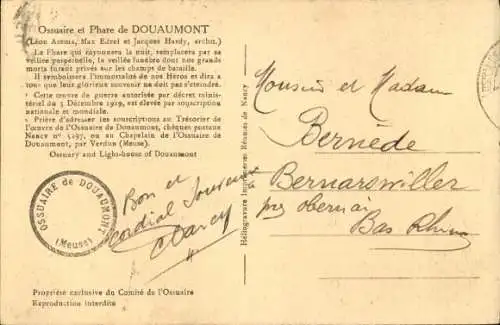 Ossuaire et Phare de DOUAUMONT
(Léon Azema, Max Edrei et Jacques Hardy, archit.)
Le Phare qui rayonnera la nuit, remplacera par sa
veillée perpétuelle, la veillée funèbre dont nos grands
morts furent privés sur les champs de bataille.
Il symbolisera l'immortalité de nos Héros et dira à
tous que leur glorieux souvenir ne doit pas s'éteindre.
Cette œuvre de guerre autorisée par décret minis-
tériel du 5 Décembre 1919, est élevée par souscription
nationale et mondiale.
Prière d'adresser les souscriptions au Trésorier de
l'œuvre de l'Ossuaire de Douaumont, chèques postaux
Nancy nº 5297, ou au Chapelain de l'Ossuaire de
Douaumont, par Verdun (Meuse).
Ossuary and Light-house of Douaumont
OSSUAIRE de DOUAUMONT
(Meuse)
Bon et
cordial Souvenir
Darcy
Propriété exclusive du Comité de l'Ossuaire
Reproduction interdite
Héliogravure Imprimeries Réunies de Nancy
Monsieur et Madame
Bernède
à
Bernarswiller
près obernai
Bas Rhin